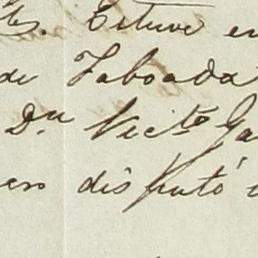 Estuve en
de Taboada
Dn Victo Ga
disputó